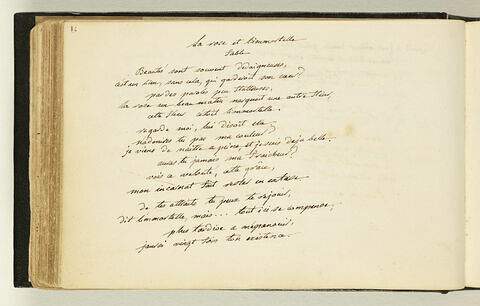 La rose et l'immortelle
fable
Beautés sont souvent dédaigneuses,
est un bien, sans cela, qui garderoit son cœur?
par des paroles peu flatteuses,
la rose un beau matin narguoit une autre fleur,
cette fleur c'étoit l'immortelle.
regarde moi, lui disoit elle
n'admires tu pas ma couleur?
je viens de naître a peine, et je suis déjà belle.
auras tu jamais ma fraicheur?
vois ce velouté, cette grâce,
mon incarnat fait rester en extase
de tes attraits tu peux te réjouir,
dit l'immortelle, mais... tout ici se compense,
plus tardive a m'épanouir,
j'aurai vingt fois ton existence.